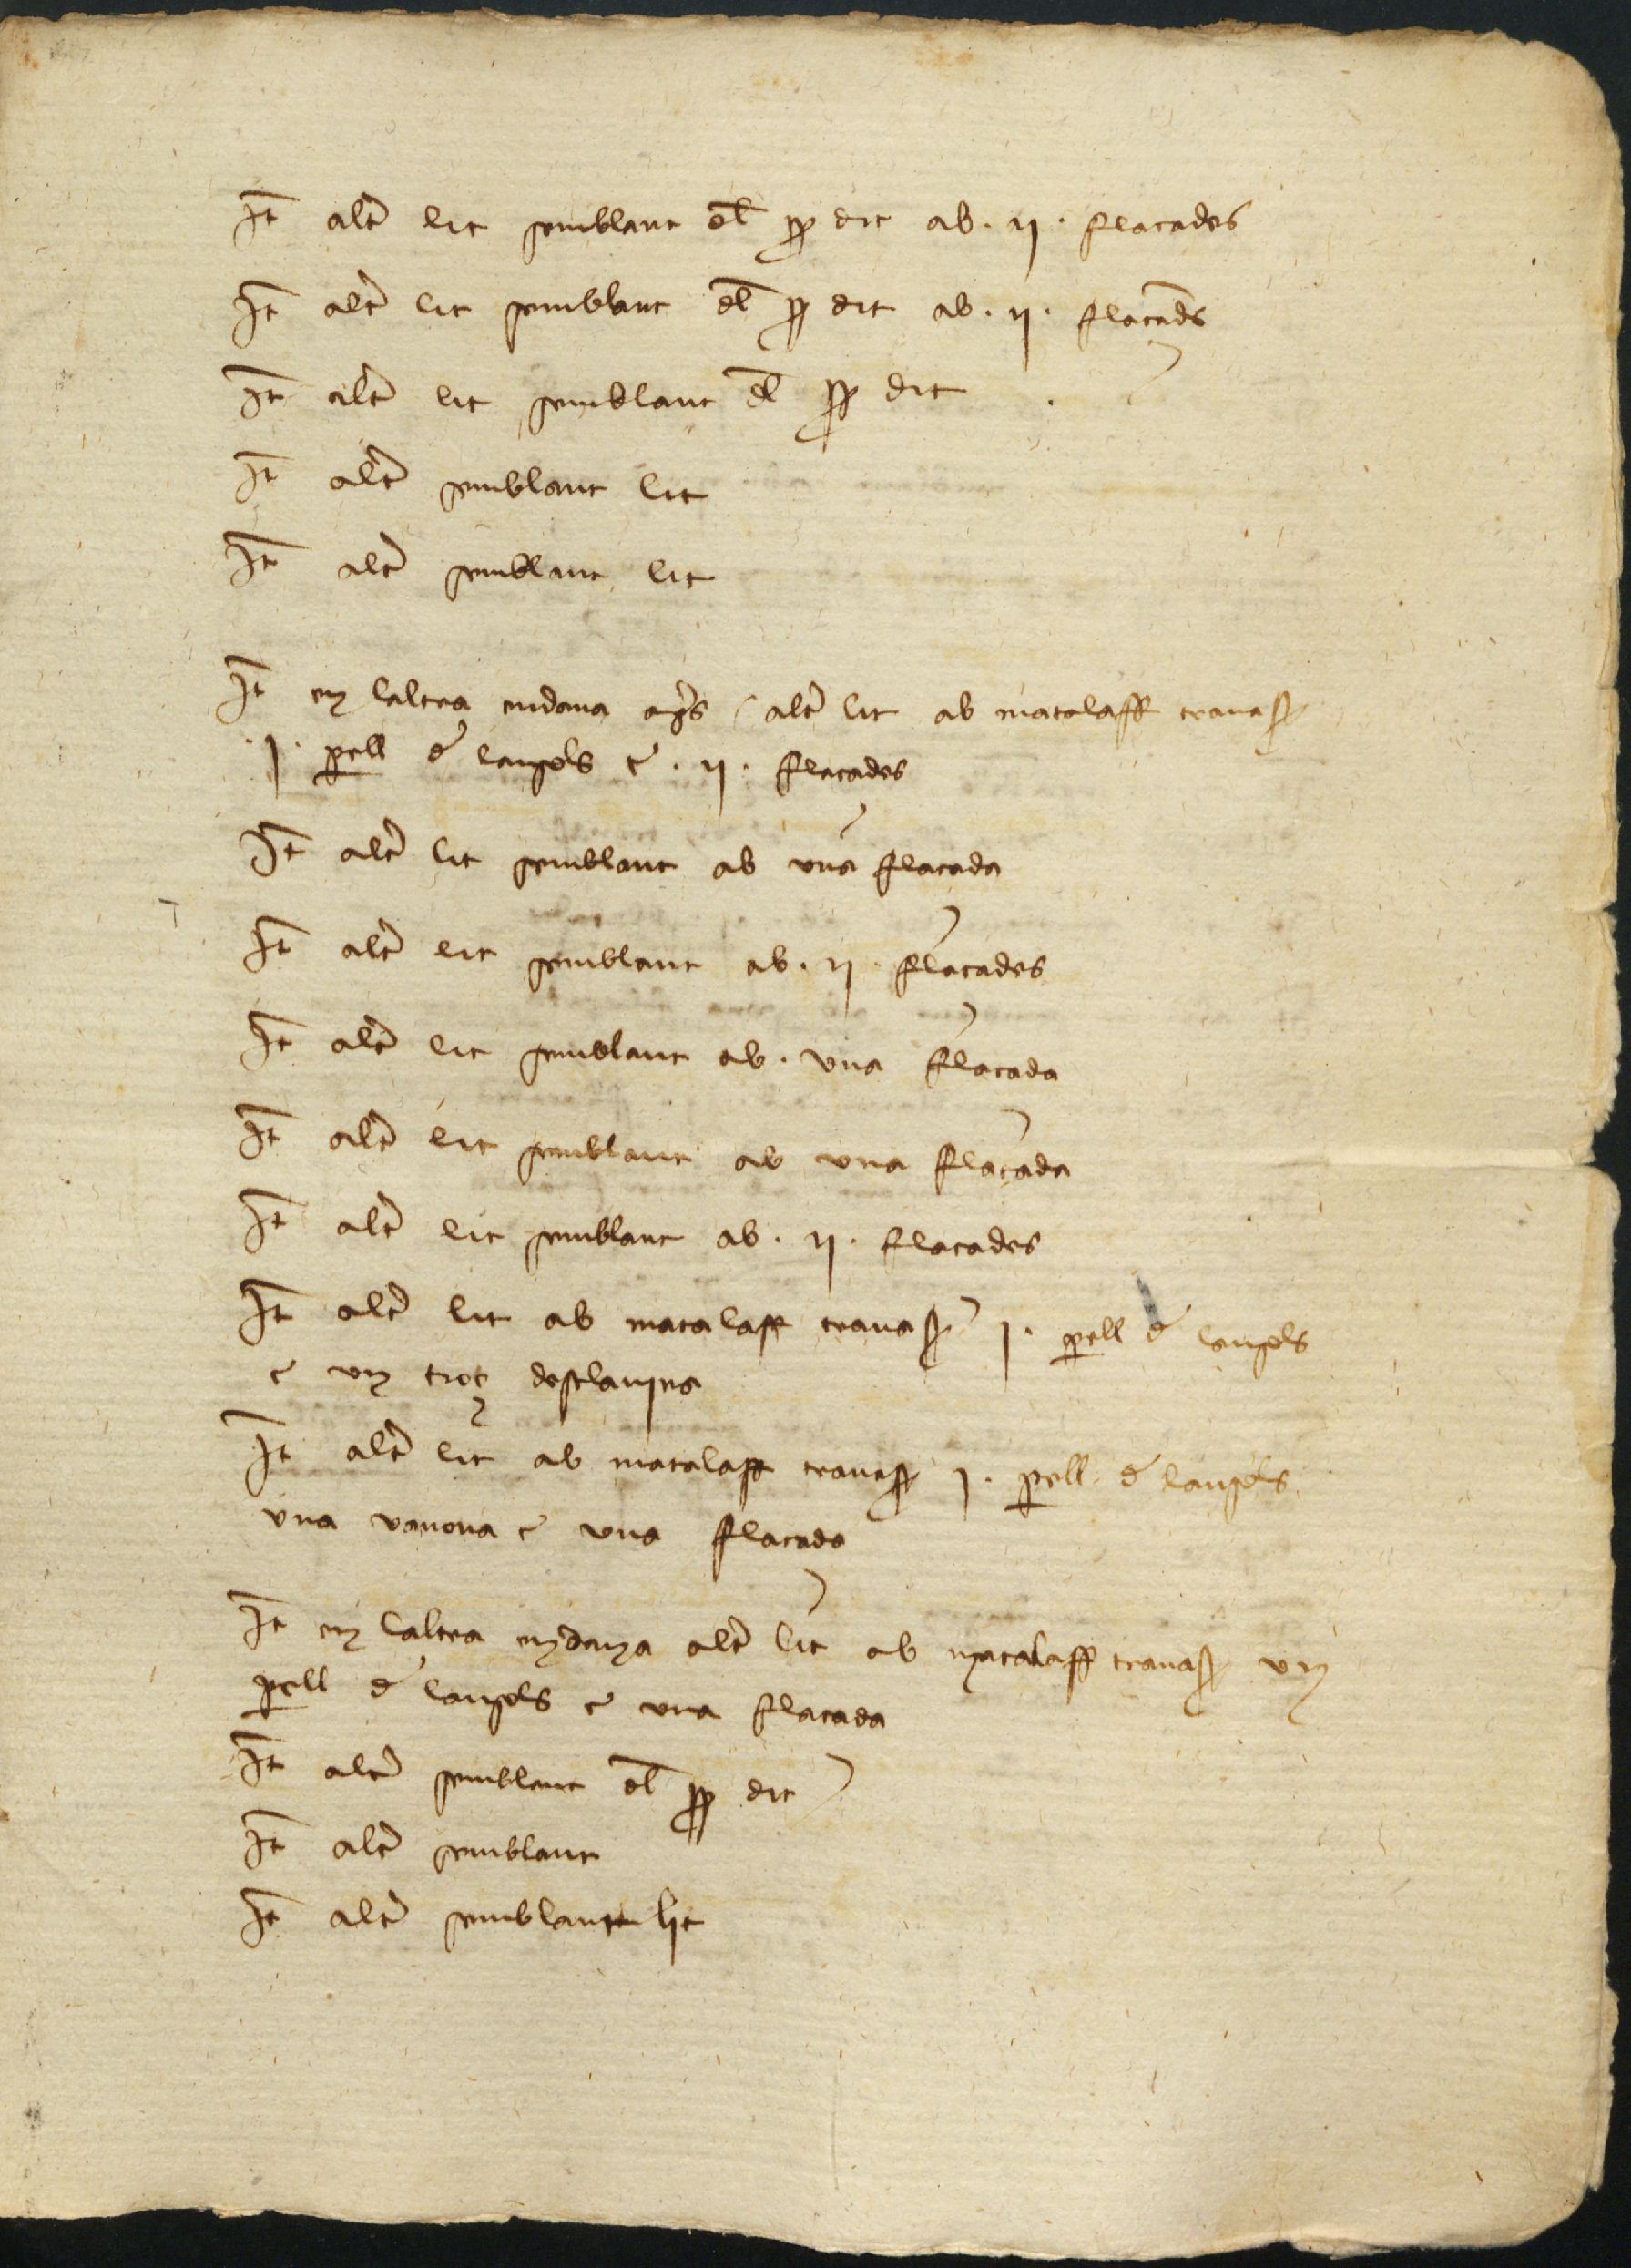 It alt lit semblant del pp dit ab . ij . flaçades
It alt lit semblant del pp dit ab . ij . flaçads
It alt lit semblant del pp dit
It alt semblant lit
It alt semblant lit
It en laltra endana alt lit ab matalaff trauas
. j . pell d lansols e . ij . flaçades
It alt lit semblant ab vna flaçada
It alt lit semblant ab . ij . flaçades
It alt lit semblant ab . vna flaçada
It alt lit semblant ab vna flaçada
It alt lit semblant ab . ij . flaçades
It alt lit ab matalaff trauas j . pell d lansols
e vn troç desclauina
It alt lit ab matalaff trauas j . pell d lansols
vna vanoua e vna flaçada
It en laltra endana alt lit ab matalaff trauas vn
pell d lansols e vna flaçada
It alt semblant del pp dit
It alt semblant
It alt semblant lit